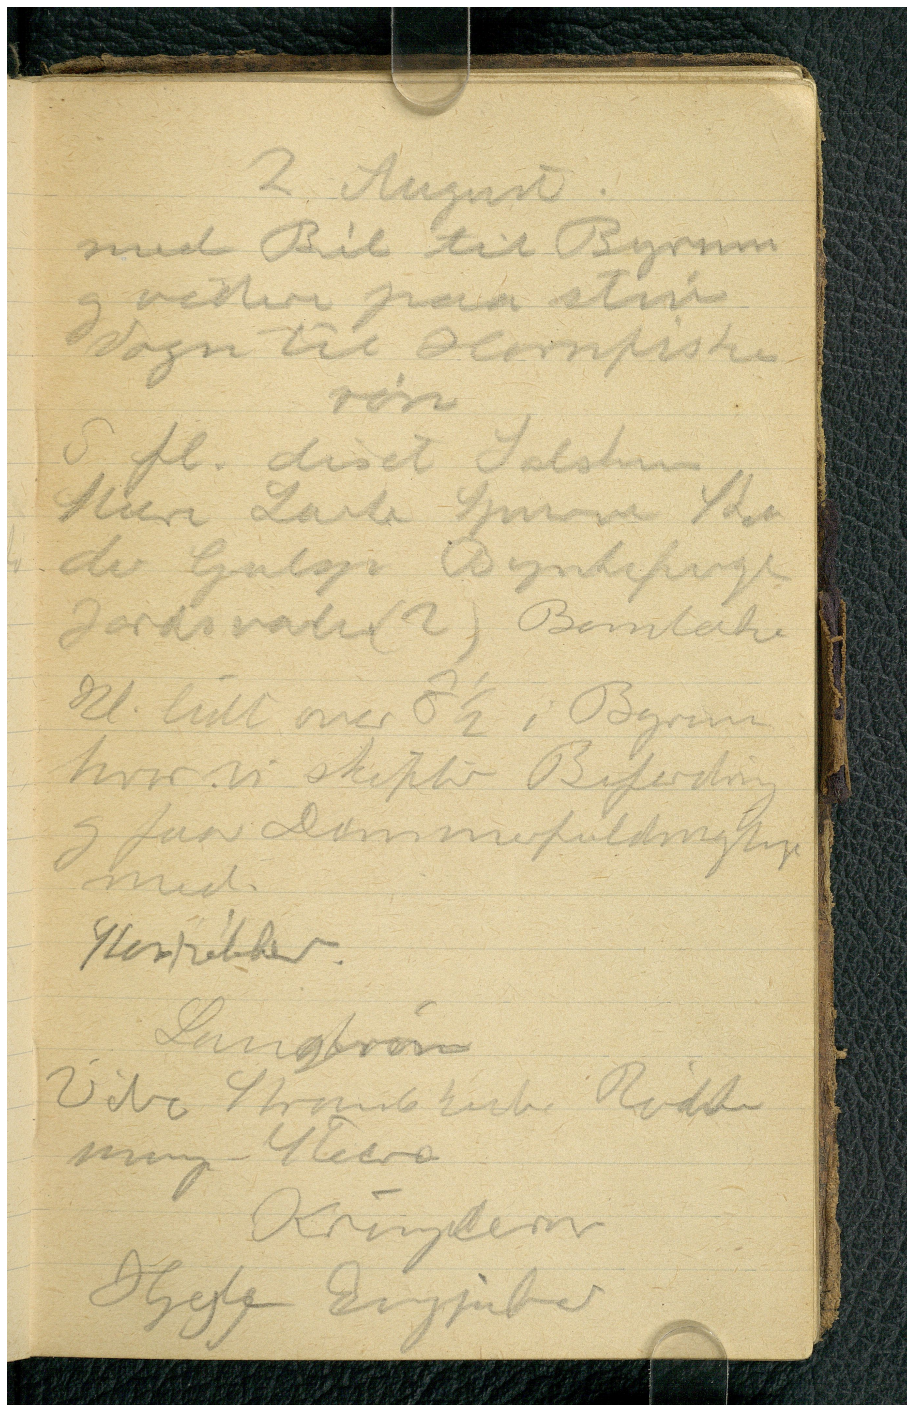 2 August.
med Bil til Byrum
og videre paa stiv
Vogn til Hornfiske
røn
S. fl. diset Solskin
Stære Lærke Spurve Ska
der Gulsp Bynkefugl
Jordsvale (2) Bomlærke
Kl. lidt over 8½ i Byrum
hvor vi skifter Befordring
og faar Dommerfuldmægtige
med.
Langerøn
Vibe Strandskade Rødbe
Stære
Kringleron
Hejle Engpiber